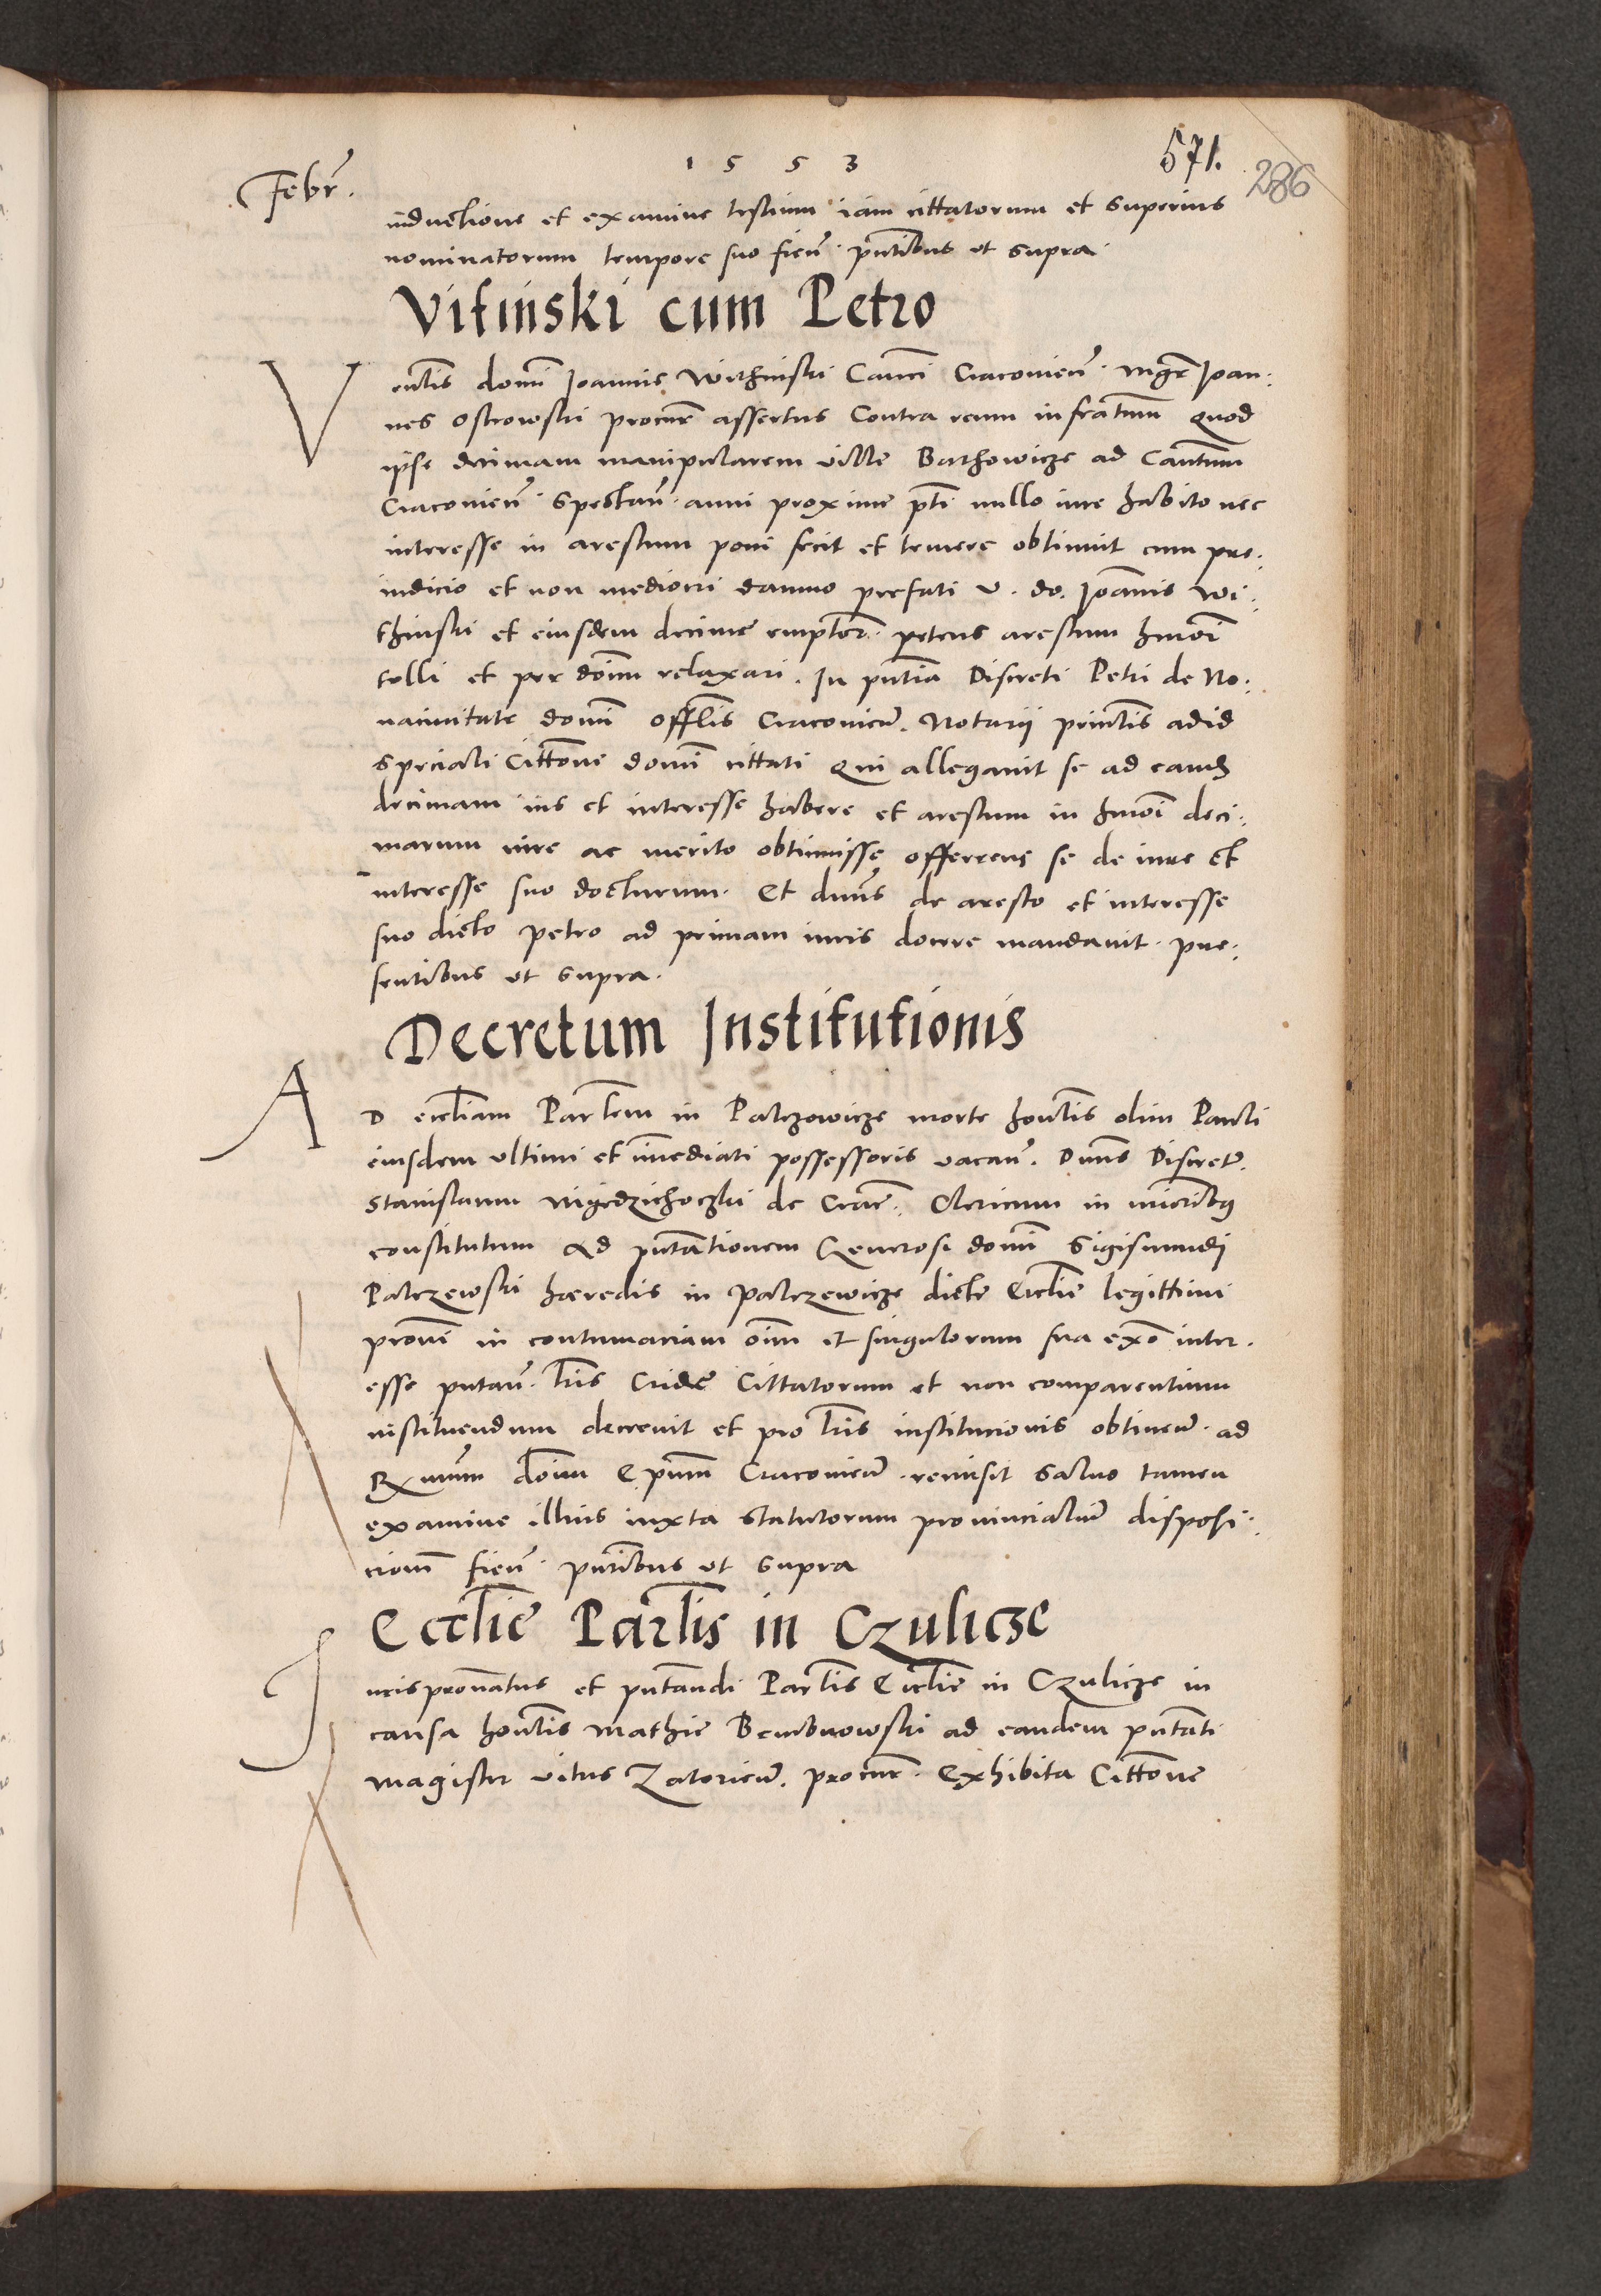 1553
571.
286
Febr̃.
inductione et examine testium iam cittatorum et superius
nominatorum tempore suo fieñ. pñtibus ut supra
Vitinski cum Petro
Veñlis domĩ Joannis Withinski Canci Cracovieñ. Mgr̃ Joan:
nes Ostrowski procur̃ assertus Contra reum infratum̃ Quod
ipse decimam manipularem ville Bathowicze ad Cantum̃
Cracovieñ. Spectañ. anni proxime pt̃i nullo iure habito nec
interesse in arestum poni fecit et temere obtinuit cum pre:
iudicio et non mediocri damno prefati v. do. Joãnis Wi:
thinski et eiusdem decime emptor̃. petens arestum hmõi
tolli et per doĩm relaxari. In pñtia Discreti Petri de No:
vacivitate domĩ Offlis Cracovieñ. Notarii princtis ad id
speciali Cittõne domĩ cittati Qui allegavit se ad eand̃
decimam ius et interesse habere et arestum in hmõi deci:
marum iure ac merito obtinuisse offerrens se de iure Et
interesse suo docturum. Et dnñs de aresto et interesse
suo dicto Petro ad primam iuris docere mandavit. pre:
sentibus ut supra.
Decretum Institutionis
AD eccliam Parlem in Palczowicze morte honlis olim Pauli
eiusdem ultimi et im̃ediati possessoris vacañ. Dnñs Discretũ.
Stanislaum Miedzichoczki de Crac̃. Clericum in mĩoribus
constitutum Ad pñtationem Generosi domĩ Sigismundi
Palczewski hæredis in Palczewicze dicte Ecclie legittimi
pronĩ in contumaciam oĩm et singulorum sua ex̃o inter.
esse putañ. lr̃is Cridæ Cittatorum et non comparentium
instituendum decrevit et pro lr̃is institucionis obtineñ. ad
Rx̃mum doĩm Epũm Cracovieñ. remisit Salvo tamen
examine illius iuxta statutorum provincialiũ disposi:
cionẽ fieñ. pñtibus ut supra
Ecclie Parlis in Czulicze
Iurispronatus et pñtandi Parlis Ecclie in Czulicze in
causa honlis Mathie Bembnowski ad eandem pñtati
Magister Vitus Zatorieñ. procur̃. Exhibita Cittõne